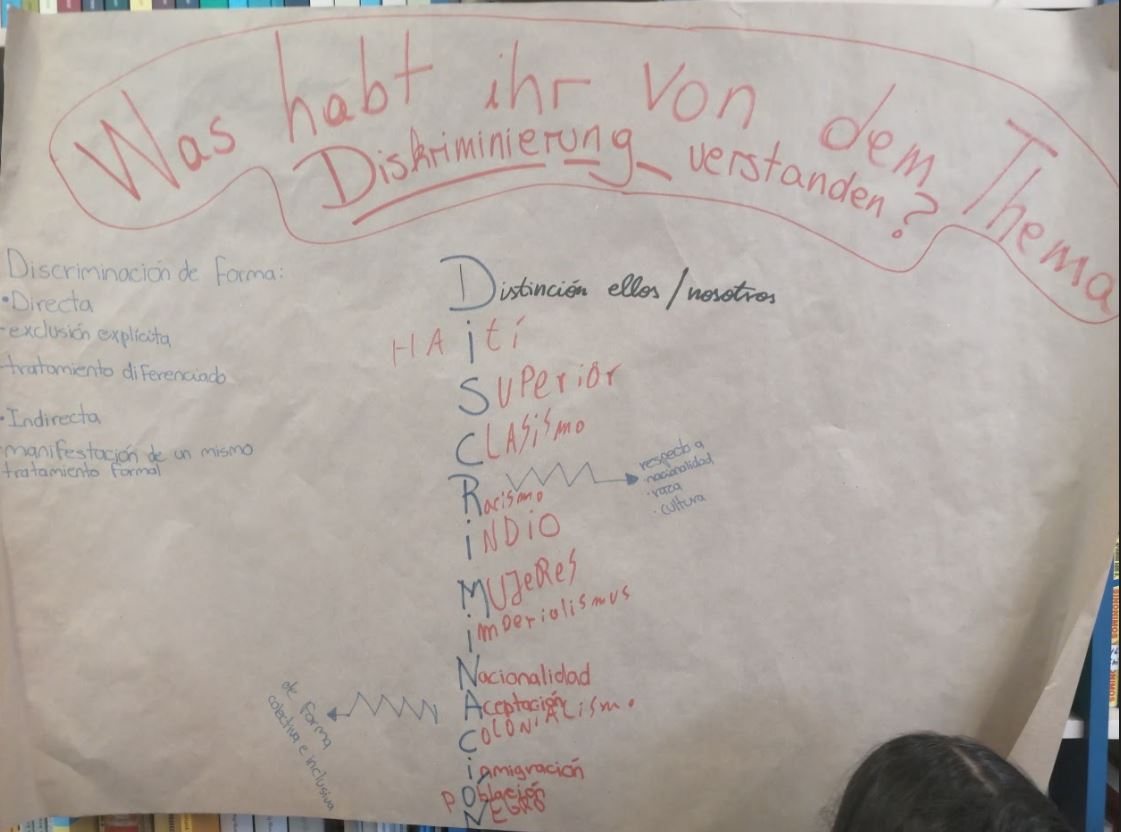 Was habt ihr von dem Thema
Diskriminierung verstanden?
Discriminación de forma:
•Directa
-exclusión explícita
-tratamiento diferenciado
•Indirecta
-manifestación de un mismo
tratamiento formal
Distinción ellos/nosotros
HAiti
SUPERiOR
CLASismo
Racismo
respecto a
·nacionalidad
·raza
·cultura
iNDiO
MUJeReS
imperialismus
Nacionalidad
Aceptación
de forma
colectiva e inclusiva
COLONiALismo
inmigración
PObloción
NEGRO